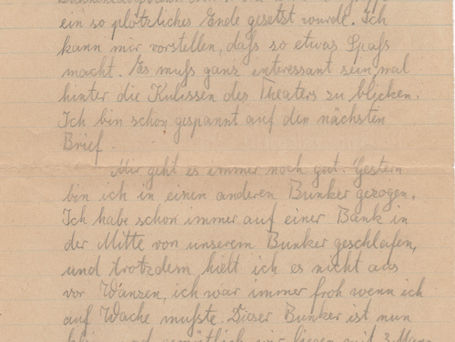 ein so plötzliches Ende gesetzt wurde. Ich
kann mir vorstellen, daſs so etwas Spaſs
macht. Es muſs ganz enteressant sein, mal
hinter die Kulissen des Theaters zu blicken.
Ich bin schon gespannt auf den nächsten
Brief.
Mir geht es immer noch gut. Gestern
bin ich in einen anderen Bunker gezogen.
Ich habe schon immer auf einer Bank in
der Mitte von unserem Bunker geschlafen,
und trotzdem hielt ich es nicht aus
vor Wanzen, ich war immer froh wenn ich
auf Wache muſste. Dieser Bunker ist nun